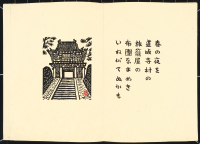 春の夜を
道成寺村の
旅籠屋の
布團なまめき
いねがてぬかも